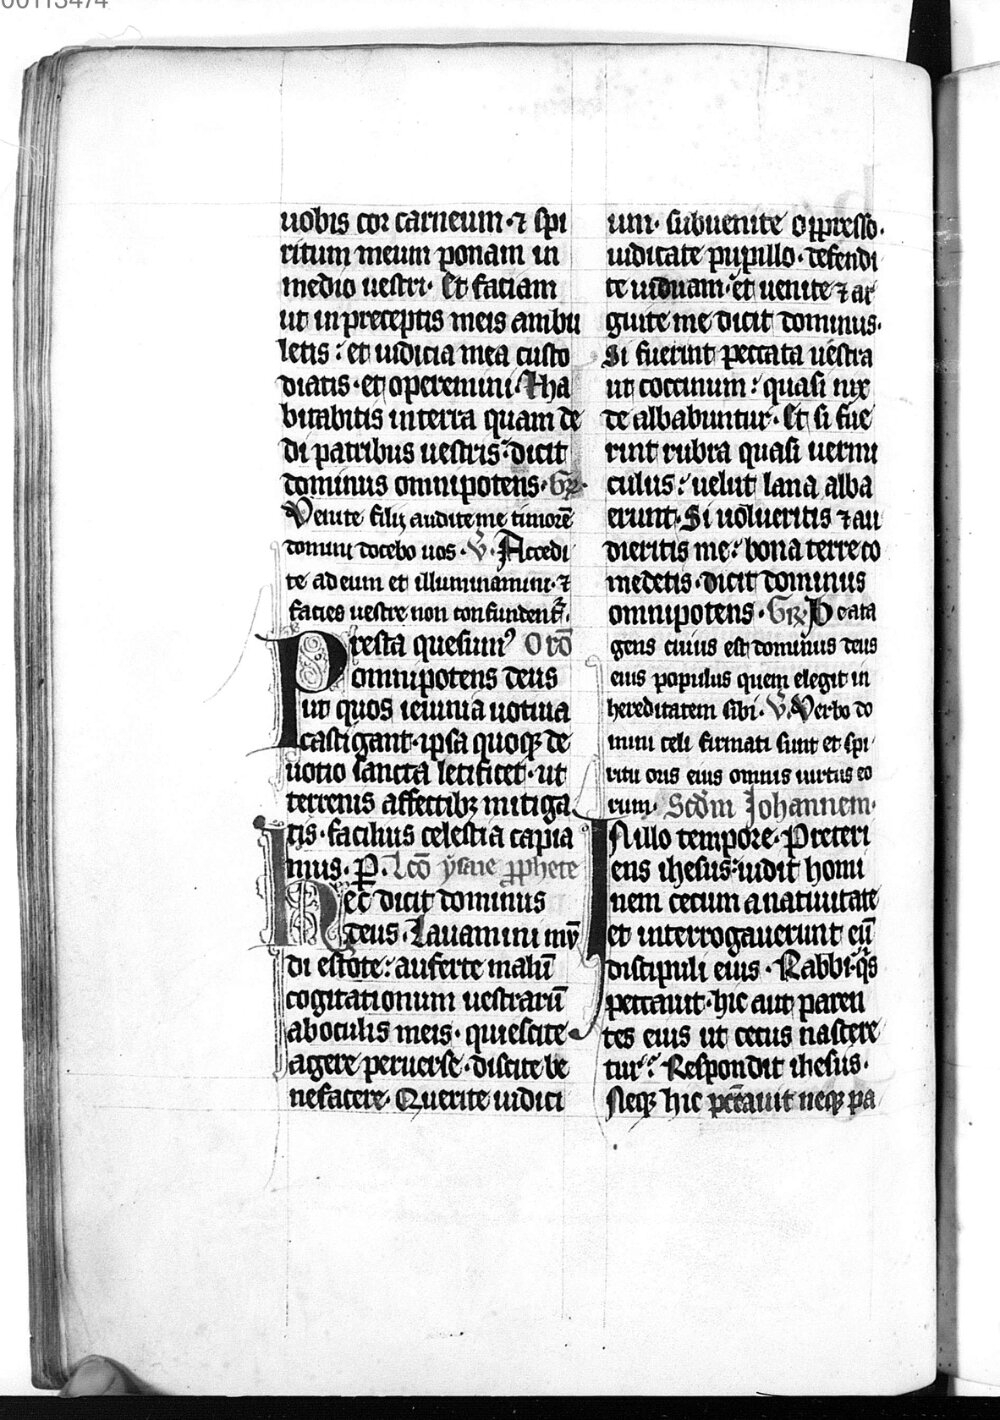 00113474
uobis cor carneum · ⁊ spi
ritum meum ponam in
medio uestri · Et faciam
ut in preceptis meis ambu
letis : et iudicia mea custo
diatis · et operemini · Et ha
bitabitis in terra quam de
di patribus uestris · dicit
dominus omnipotens · Gr̄ ·
Venite filij audite me timorē
domini docebo uos · V̄ · Accedi
te ad eum et illuminamini · ⁊
facies uestre non confundent᷑ ·
Presta quesumꝰ Orō
omnipotens deus
ut quos ieiunia uotiua
castigant · ipsa quoqꝫ de
uotio sancta letificet · ut
terrenis affectibꝫ mitiga
tis · facilius celestia capia
mus · P̲ · Lcō ysaie ꝓphete
Hec dicit dominus
deus · Lauamini mū
di estote : auferte malū
cogitationum uestrarū
ab oculis meis · quiescite
agere peruerse · discite be
nefacere · Querite iudici
um · subuenite oppresso ·
iudicate pupillo · defendi
te uiduam · et uenite ⁊ ar
guite me dicit dominus ·
Si fuerint peccata uestra
ut coccinum : quasi nix
de albabuntur · Et si fue
rint rubra quasi uermi
culus : uelut lana alba
erunt · Si uolueritis ⁊ au
dieritis me : bona terre co
medetis · dicit dominus
omnipotens · Gr̄ · Beata
gens cuius est dominus deus
eius populus quem elegit in
hereditatem sibi · V̄ · Verbo do
mini celi firmati sunt et spi
ritu oris eius omnis uirtus eo
rum · Scd̄m Johannem ·
In illo tempore · Preteri
ens ihesus : uidit homi
nem cecum a natiuitate
et interrogauerunt eū
discipuli eius · Rabbi · qͥs
peccauit · hic aut paren
tes eius ut cecus nascere
tur : Respondit ihesus ·
Neqꝫ hic pcc̄auit neqꝫ pa